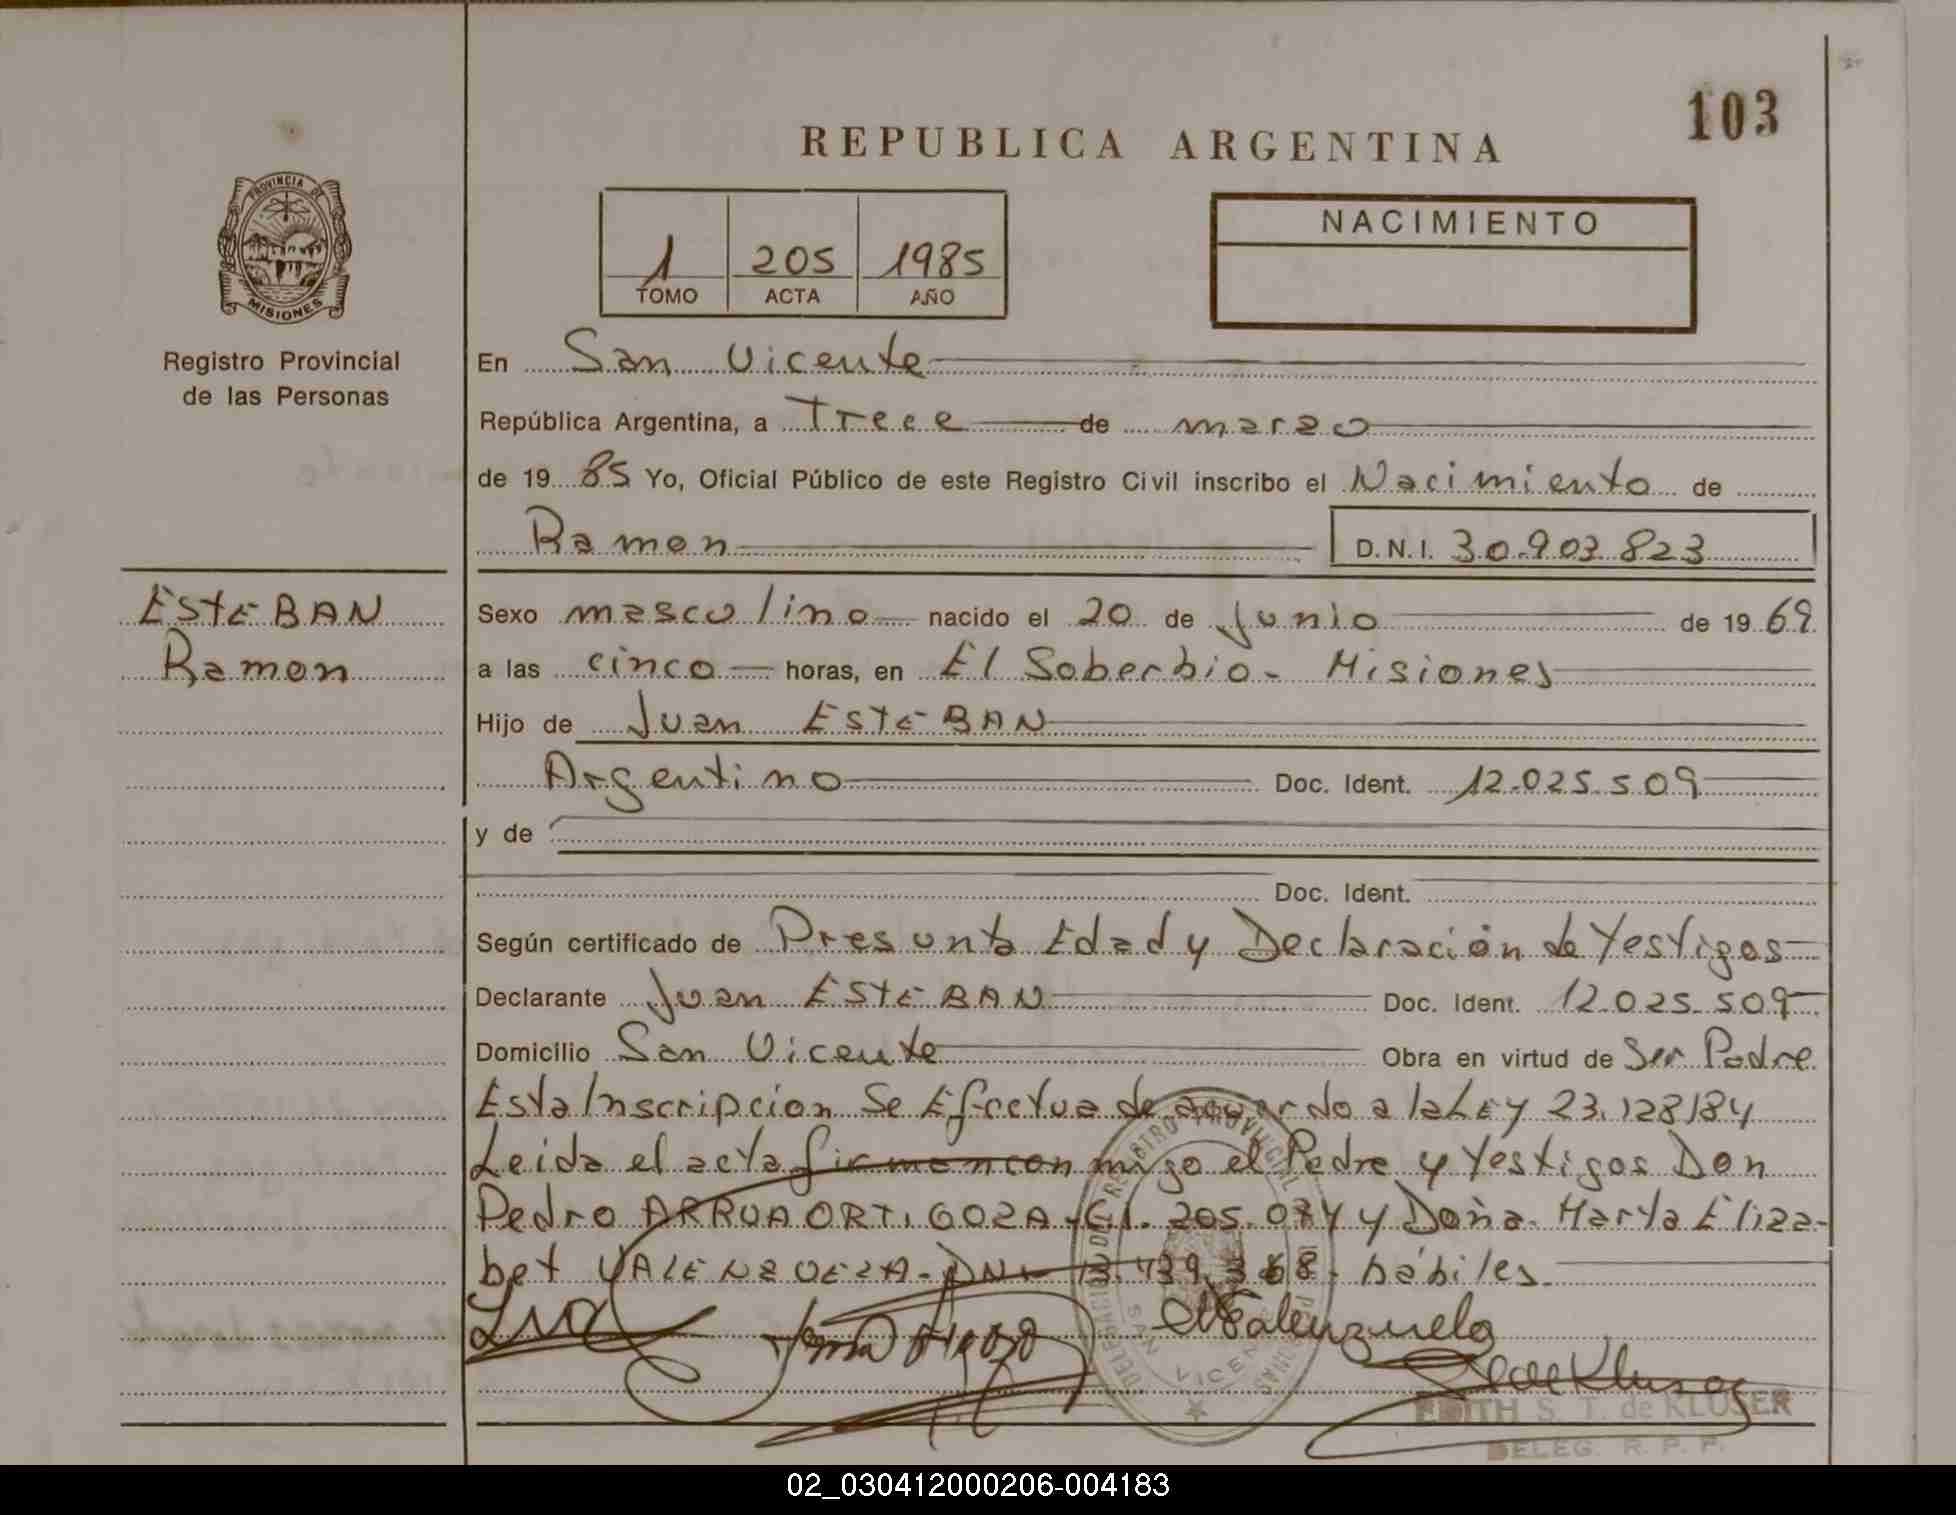 103
REPUBLICA ARGENTINA
PROVINCIA DE
MISIONES
Registro Provincial
de las Personas
1 205 1985
TOMO ACTA AÑO
NACIMIENTO
En San Vicente
República Argentina, a Trece de marzo
de 19 85 Yo, Oficial Público de este Registro Civil inscribo el Nacimiento de
Ramon D.N.I. 30.903.823
ESTEBAN
Ramon
Sexo masculino nacido el 20 de Junio de 19 69
a las cinco horas, en El Soberbio - Misiones
Hijo de Juan ESTEBAN
Argentino Doc. Ident. 12.025.509
y de
Doc. Ident.
Según certificado de Presunta Edad y Declaración de Testigos
Declarante Juan ESTEBAN Doc. Ident. 12.025.509
Domicilio San Vicente Obra en virtud de Ser Padre
Esta Inscripcion Se Efectua de acuerdo a la LEY 23.128/84
Leida el acta firman con migo el Padre y Testigos Don
Pedro ARRUA ORTIGOZA - C.I. 205.074 y Doña Marta Eliza-
bet VALENZUELA - DNI 13.739.368 - hábiles.
MValenzuela
S de Kluser
EDITH S. T. de KLUSER
DELEG. R. P. P.
REGISTRO PROVINCIAL
SAN VICENTE
02_030412000206-004183